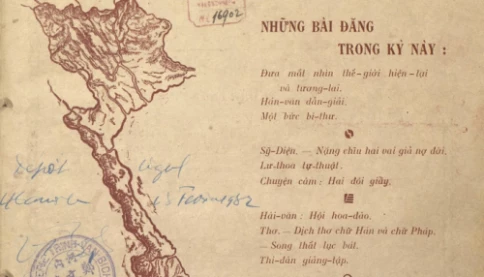 16902
NHỮNG BÀI ĐĂNG
TRONG KỲ NÀY :
Đưa mắt nhìn thế-giới hiện-tại
và tương-lai.
Hán-văn dẫn-giải.
Một bức bí-thư.
Sỹ-Diện. — Nặng chĩu hai vai giả nợ đời.
Lư-thoa tự-thuật.
Chuyện cảm : Hai đôi giầy.
Hài-văn : Hội hoa-đào.
Thơ. — Dịch thơ chữ Hán và chữ Pháp.
— Song thất lục bát.
Thi-đàn giảng-lập.
Dépôt légal